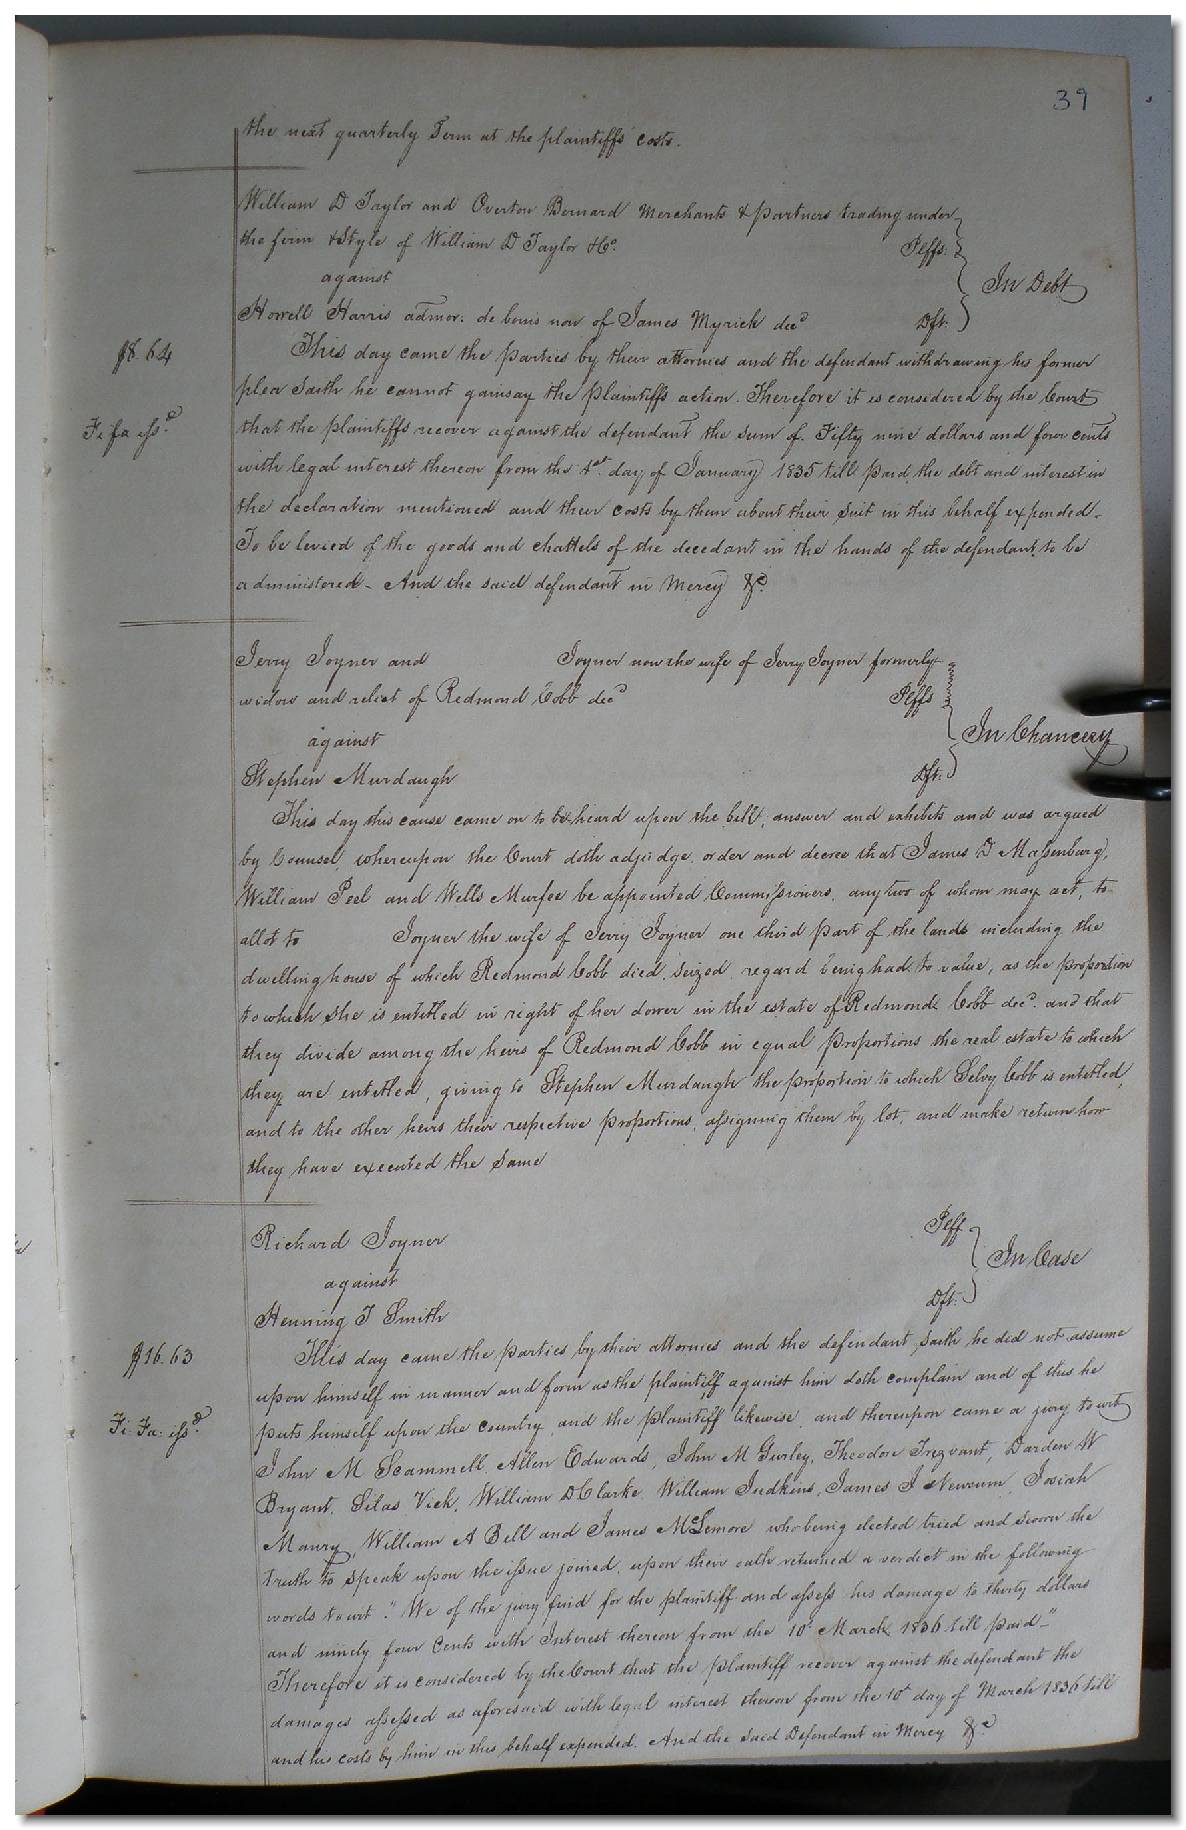 39
the next quarterly Term at the plaintiffs costs.
William D Taylor and Overton Bernard Merchants & partners trading under
the firm & Style of William D Taylor & Co. Pltffs.
against In Debt
Howell Harris admor. de bonis non of James Myrick decd Dft.
$8.64
This day came the parties by their attornies and the defendant withdrawing his former
plea saith he cannot gainsay the plaintiffs action. Therefore it is considered by the Court
Fi fa issd
that the plaintiffs recover against the defendant the sum of Fifty nine dollars and four cents
with legal interest thereon from the 1st day of January 1835 till paid, the debt and interest in
the declaration mentioned and their costs by them about their suit in this behalf expended.
To be levied of the goods and chattels of the decedant in the hands of the defendant to be
administered - And the said defendant in Mercy &c.
Jerry Joyner and Joyner now the wife of Jerry Joyner formerly
widow and relict of Redmond Cobb decd Pltffs
against In Chancery
Stephen Murdaugh Dft.
This day this cause came on to be heard upon the bill, answer and exhibits and was argued
by Counsel, whereupon the Court doth adjudge, order and decree that James D Massenburg,
William Peel and Wells Murfee be appointed Commissioners, any two of whom may act, to
allot to Joyner the wife of Jerry Joyner one third part of the lands including the
dwelling house of which Redmond Cobb died, seized, regard being had to value, as the proportion
to which she is entitled in right of her dower in the estate of Redmond Cobb decd. and that
they divide among the heirs of Redmond Cobb in equal proportions the real estate to which
they are entitled, giving to Stephen Murdaugh the proportion to which Selvy Cobb is entitled,
and to the other heirs their respective proportions, assigning them by lot, and make return how
they have executed the same
Richard Joyner Pltff
against In Case
Henning T Smith Dft.
$16.63
This day came the parties by their attornies and the defendant saith he did not assume
upon himself in manner and form as the plaintiff against him doth complain and of this he
Fi: Fa: issd.
puts himself upon the country, and the plaintiff likewise, and thereupon came a jury to wit
John M Scammell, Allen Edwards, John M Gurley, Theodore Trezvant, Darden W
Bryant, Silas Vick, William D Clarke, William Judkins, James J Newsum, Josiah
Maury, William A Bell and James McLemore who being elected tried and sworn the
truth to speak upon the issue joined, upon their oath returned a verdict in the following
words to wit "We of the jury find for the plaintiff and assess his damage to thirty dollars
and ninety four Cents with Interest thereon from the 10th March 1836 till paid"
Therefore it is considered by the Court that the plaintiff recover against the defendant the
damages assessed as aforesaid with legal interest thereon from the 10th day of March 1836 till
and his costs by him in this behalf expended. And the said Defendant in Mercy &c